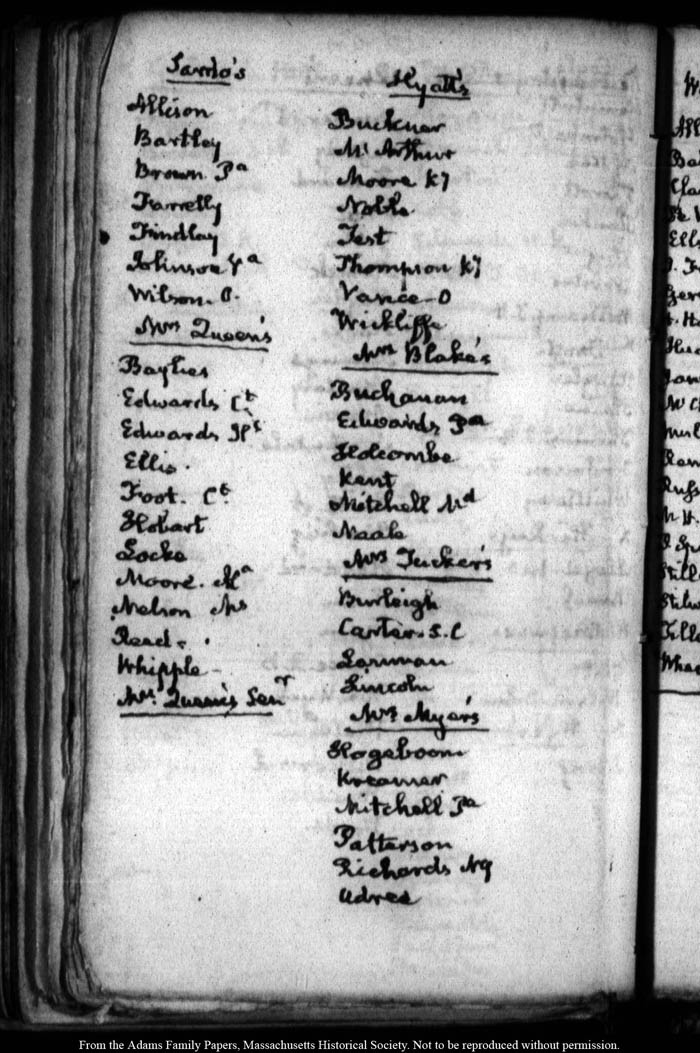 Allison
Bartley
Brown. Pa
Farrelly
Findlay
Johnson Va
Wilson. O.
Mrs Queen's
Baylies
Edwards Ct
Edwards
Ellis.
Foot. Ct
Hobart
Locke
Moore.
Nelson Ms
Read.
Whipple
Mrs. Queen's Senr
Hyatt's
Buckner
McArthur
Moore Ky
Noble
Test
Thompson Ky
Vance - O
Wickliffe
Mrs Blake's
Buchanan
Edwards Pa
Holcombe
Kent
Mitchell Md
Neale
Mrs Tucker's
Burleigh
Carter. S.C
Lanman
Lincoln
Mrs Myer's
Hogeboom
Kreamer
Mitchell Pa
Patterson
Richards NY
Udree
From the Adams Family Papers, Massachusetts Historical Society. Not to be reproduced without permission.